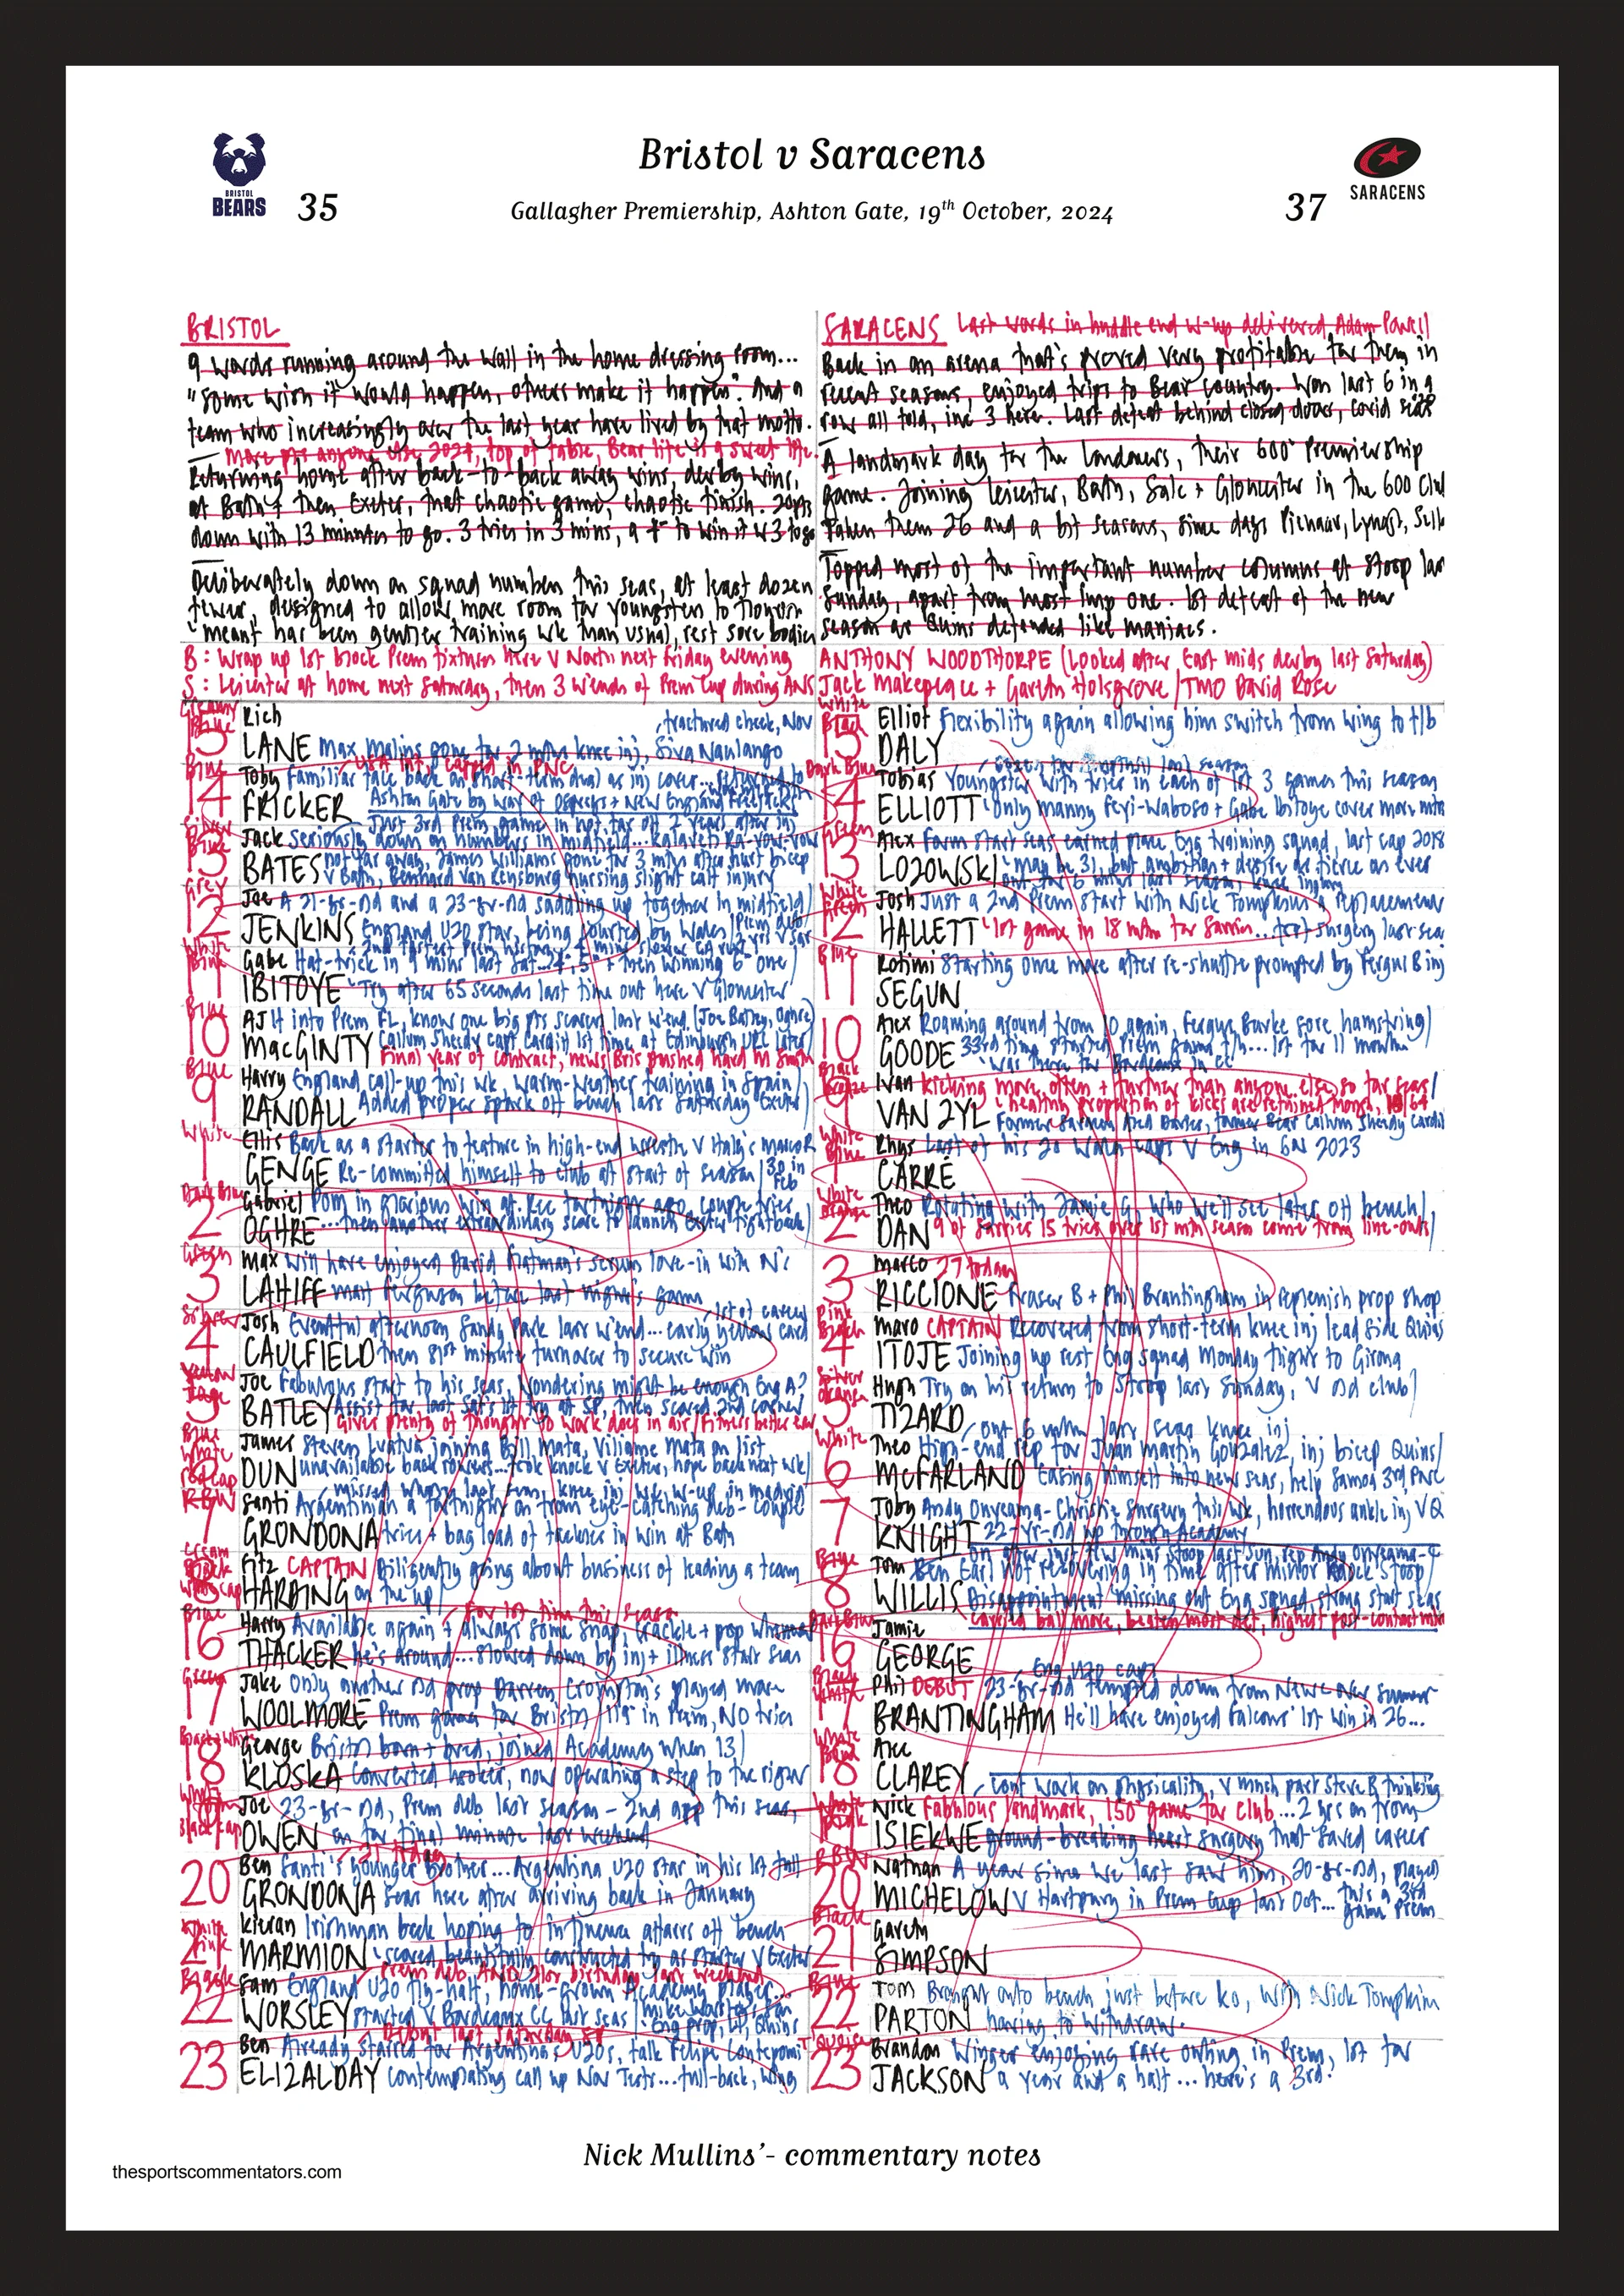 Bristol v Saracens
Gallagher Premiership, Ashton Gate, 19th October, 2024
BRISTOL
BEARS
35
37
SARACENS
BRISTOL
9 words running around the wall in the home dressing room...
"Some wish it would happen, others make it happen". And a
team who increasingly over the last year have lived by that motto.
More pts anyone else 2024, top of table, Bear life is a sweet life.
Returning home after back-to-back away wins, derby wins,
at Bath + then Exeter, that chaotic game, chaotic finish. 20pts
down with 13 minutes to go. 3 tries in 3 mins, a + to win it v 3 to go
Deliberately down on squad numbers this seas, at least dozen
fewer, designed to allow more room for youngsters to flourish
meant has been gentler training wk than usual, rest sore bodies
B: Wrap up 1st block Prem fixtures here v North next Friday evening
S: Leicester at home next Saturday, then 3 w'ends of Prem Cup during ANS
SARACENS Last words in huddle end w-up delivered Adam Powell
Back in an arena that's proved very profitable for them in
recent seasons, enjoyed trips to Bear country. Won last 6 in a
row all told, inc 3 here. Last defeat behind closed doors, covid seas '20
A landmark day for the Londoners, their 600th Premiership
game. Joining Leicester, Bath, Sale + Gloucester in the 600 Club
Taken them 26 and a bit seasons, since days Pienaar, Lynagh, Sella
Topped most of the important number columns at Stoop last
Sunday, apart from most imp one. 1st defeat of the new
season as Quins defended like maniacs.
ANTHONY WOODTHORPE (Looked after East mids derby last Saturday)
Jack Makepeace + Gareth Holsgrove / TMO David Rose
15 Rich fractured cheek, Nov
LANE Max Malins gone for 2 mths knee inj, Siva Naulango
Blue
14 Toby Familiar face back on short term deal as inj cover... returned to
USA int, capped in PNC
FRICKER Ashton Gate by way of + New England Freejacks
Just 3rd Prem game in not far off 2 years after inj
13 Jack Seriously down on numbers in midfield... Kalaveti Ra-vou-vou
BATES not far away, James Williams gone for 3 mths after hurt bicep
v Bath, Benhard van Rensburg nursing slight calf injury
Grey
12 Joe A 21-yr-old and a 23-yr-old saddling up together in midfield
JENKINS England U20 star, being courted by Wales
2nd fastest Prem history
White
Blue
11 Gabe Hat-trick in 9 mins last Sat... + then winning 6th one
IBITOYE Try after 65 seconds last time out here v Gloucester
Blue
10 AJ into Prem FL, know one big pts scorer last w'end (Joe Batley, Oghre)
Callum Sheedy capt Cardiff 1st time at Edinburgh URC later
MacGINTY Final year of contract, news Bris pushed hard M Smith
Blue
9 Harry England call-up this wk, warm-weather training in Spain
RANDALL Added proper spark off bench last Saturday Exeter
White
1 Ellis Back as a starter to feature in high-end wrestle v Italy's Marco R
GENGE Re-committed himself to club at start of season / 30 in Feb
Dark Blue
2 Gabriel Pom in glorious win at Rec fortnight ago, couple tries
OGHRE ...then another extraordinary score to launch Exeter fightback
Green
3 Max will have enjoyed David Flatman's scrum love-in with N'
LAHIFF Matt Ferguson before last night's game
4 Josh Eventful afternoon Sandy Park last w'end... early yellow card
1st of career
CAULFIELD then 81st minute turnover to secure win
Yellow
5 Joe Fabulous start to his seas, wondering might be enough Eng A?
BATLEY Assist for last Sat's 1st try at SP, then scored 2nd
Gives plenty of thought to work does in air / Fitness better
Blue
White
6 James Steven Luatua joining Bill Mata, Viliame Mata on list
DUN unavailable back rowers... took knock v Exeter, hope back next wk
Red Cap
7 Santi Argentinian a fortnight on from eye-catching deb - couple
GRONDONA tries + bag load of tackles in win at Bath
Cream
8 Fitz CAPTAIN Diligently going about business of leading a team
HARDING on the up
Blue
16 Harry Available again + always some snap, crackle + pop whenever
For 1st time this season
THACKER he's around... slowed down by inj + illness start seas
Green
17 Jake Only another old prop Darren Crompton's played more
WOOLMORE Prem games for Bristol / 119 in Prem, NO tries
18 George Bristol born + bred, joined Academy when 13
KLOSKA Converted hooker, now operating a step to the right
19 Joe 23-yr-old, Prem deb last season - 2nd app this seas,
OWEN on for final minute last weekend
20 Ben Santi's younger brother... Argentina U20 star in his 1st full
GRONDONA Seas here after arriving back in January
White
Pink
21 Kieran Irishman back hoping to influence affairs off bench
MARMION scored beautifully constructed try as starter v Exeter
Prem deb AND 21st birthday last weekend
Black
22 Sam England U20 fly-half, home-grown Academy player...
WORSLEY started v Bordeaux CC last seas / Mike Worsley's son
Eng prop, LI, Quins
Debut last Saturday SP
23 Ben Already starred for Argentina's U20s, talk Felipe Contepomi
ELIZALDAY contemplating call up Nov Tests... full-back, wing
White
Black
15 Elliot Flexibility again allowing him switch from wing to f/b
DALY
Dark Blue
14 Tobias Youngster with tries in each of 1st 3 games this season
ELLIOTT Only Manny Feyi-Waboso + Gabe Ibitoye cover more mtrs
Green
13 Alex Form start seas earned place Eng training squad, last cap 2018
LOZOWSKI may be 31, but ambition + desire as fierce as ever
out for 6 mths last season, knee injury
White
Green
12 Josh Just a 2nd Prem start with Nick Tompkins a replacement
HALLETT 1st game in 18 mths for Sarries... foot surgery last seas
Blue
11 Rotimi Starting once more after re-shuffle prompted by Fergus B inj
SEGUN
10 Alex Roaming around from 10 again, Fergus Burke sore hamstring
GOODE 33rd time started Prem game f/h... 1st for 11 months
was there for Bordeaux in CC
Black
9 Ivan kicking more often + further than anyone else so far seas
healthy proportion of kicks are retained
VAN ZYL Former Bear Callum Sheedy Cardiff
White
Blue
1 Rhys Last of his 20 Wales caps v Eng in 6N 2023
CARRÉ
White
Orange
2 Theo Rotating with Jamie G, who we'll see later off bench
DAN 9 of Sarries 15 tries over 1st mth season come from line-outs
3 Marco 27 today
RICCIONE Fraser B + Phil Brantingham in replenish prop shop
Pink
Black
4 Maro CAPTAIN Recovered from short-term knee inj lead side Quins
ITOJE Joining up rest Eng squad Monday flight to Girona
Silver
Orange
5 Hugh Try on his return to Stoop last Sunday, v old club
TIZARD out 6 mths last seas knee inj
White
6 Theo High-end rep for Juan Martin Gonzalez, inj bicep Quins
McFARLAND Easing himself into new seas, help Samoa 3rd PNC
7 Toby Andy Onyeama-Christie surgery this wk, horrendous ankle inj v Q
KNIGHT 22-yr-old up through Academy
on after just few mins Stoop last Sun, rep Andy Onyeama-C
Blue
8 Tom Ben Earl not recovering in time after minor knock Stoop
WILLIS Disappointment missing out Eng squad, strong start seas
carried ball more, beaten most def, highest post-contact mtrs
Dark Blue
16 Jamie
GEORGE
Black
White
17 Phil DEBUT 23-yr-old tempted down from Newc New Summer
Eng U20 caps
BRANTINGHAM He'll have enjoyed Falcons' 1st win in 26...
White
18 Alec
CLAREY cont work on physicality, v much part Steve B thinking
19 Nick Fabulous landmark, 150th game for club... 2 yrs on from
ISIEKWE ground-breaking heart surgery that saved career
20 Nathan A year since we last saw him, 20-yr-old, played
MICHELOW v Hartpury in Prem Cup last Oct... this a 3rd
game Prem
Black
21 Gareth
SIMPSON
Blue
22 Tom Brought onto bench just before ko, with Nick Tompkins
PARTON having to withdraw.
T'Quoise
23 Brandon Winger enjoying rare outing in Prem, 1st for
JACKSON a year and a half... here's a 3rd.
Nick Mullins'- commentary notes
thesportscommentators.com